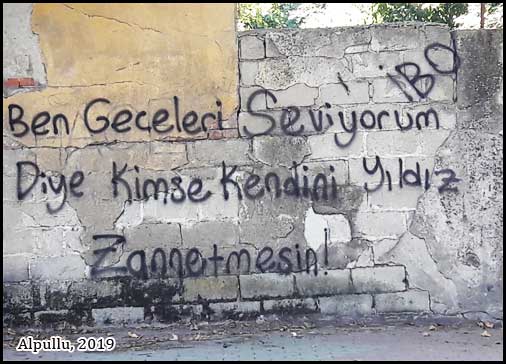 İBO
Ben Geceleri Seviyorum
Diye Kimse Kendini Yıldız
Zannetmesin!
Alpullu, 2019